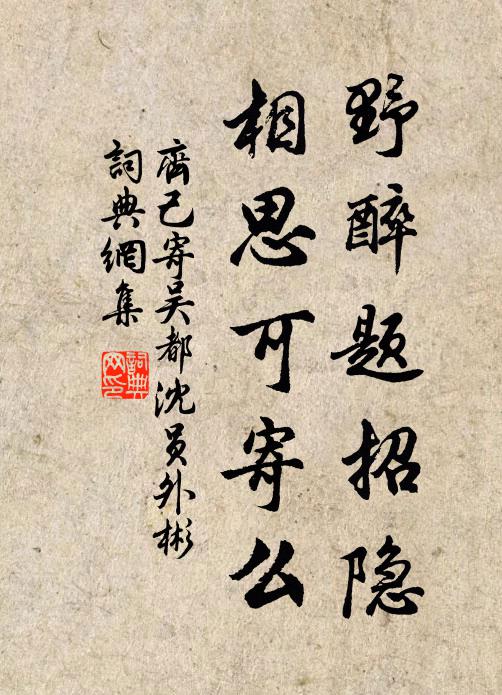 野醉题招隐
相思可寄么
齊己寄吴都沈员外彬
詞典網集
詞典网印